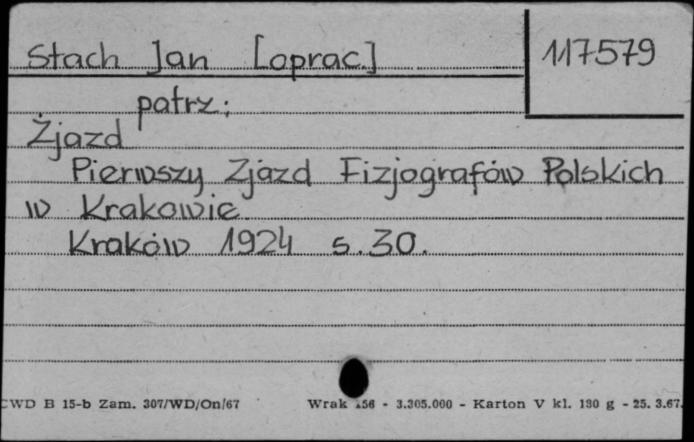 Stach Jan [oprac] 117579
patrz:
Żjazd
Pierwszy Zjazd Fizjografów Polskich
w Krakowie
Kraków 1924 s. 30.
CWD B 15-b Zam. 307/WD/On/67 Wrak 156 - 3.305.000 - Karton V kl. 180 g - 25. 3.67.